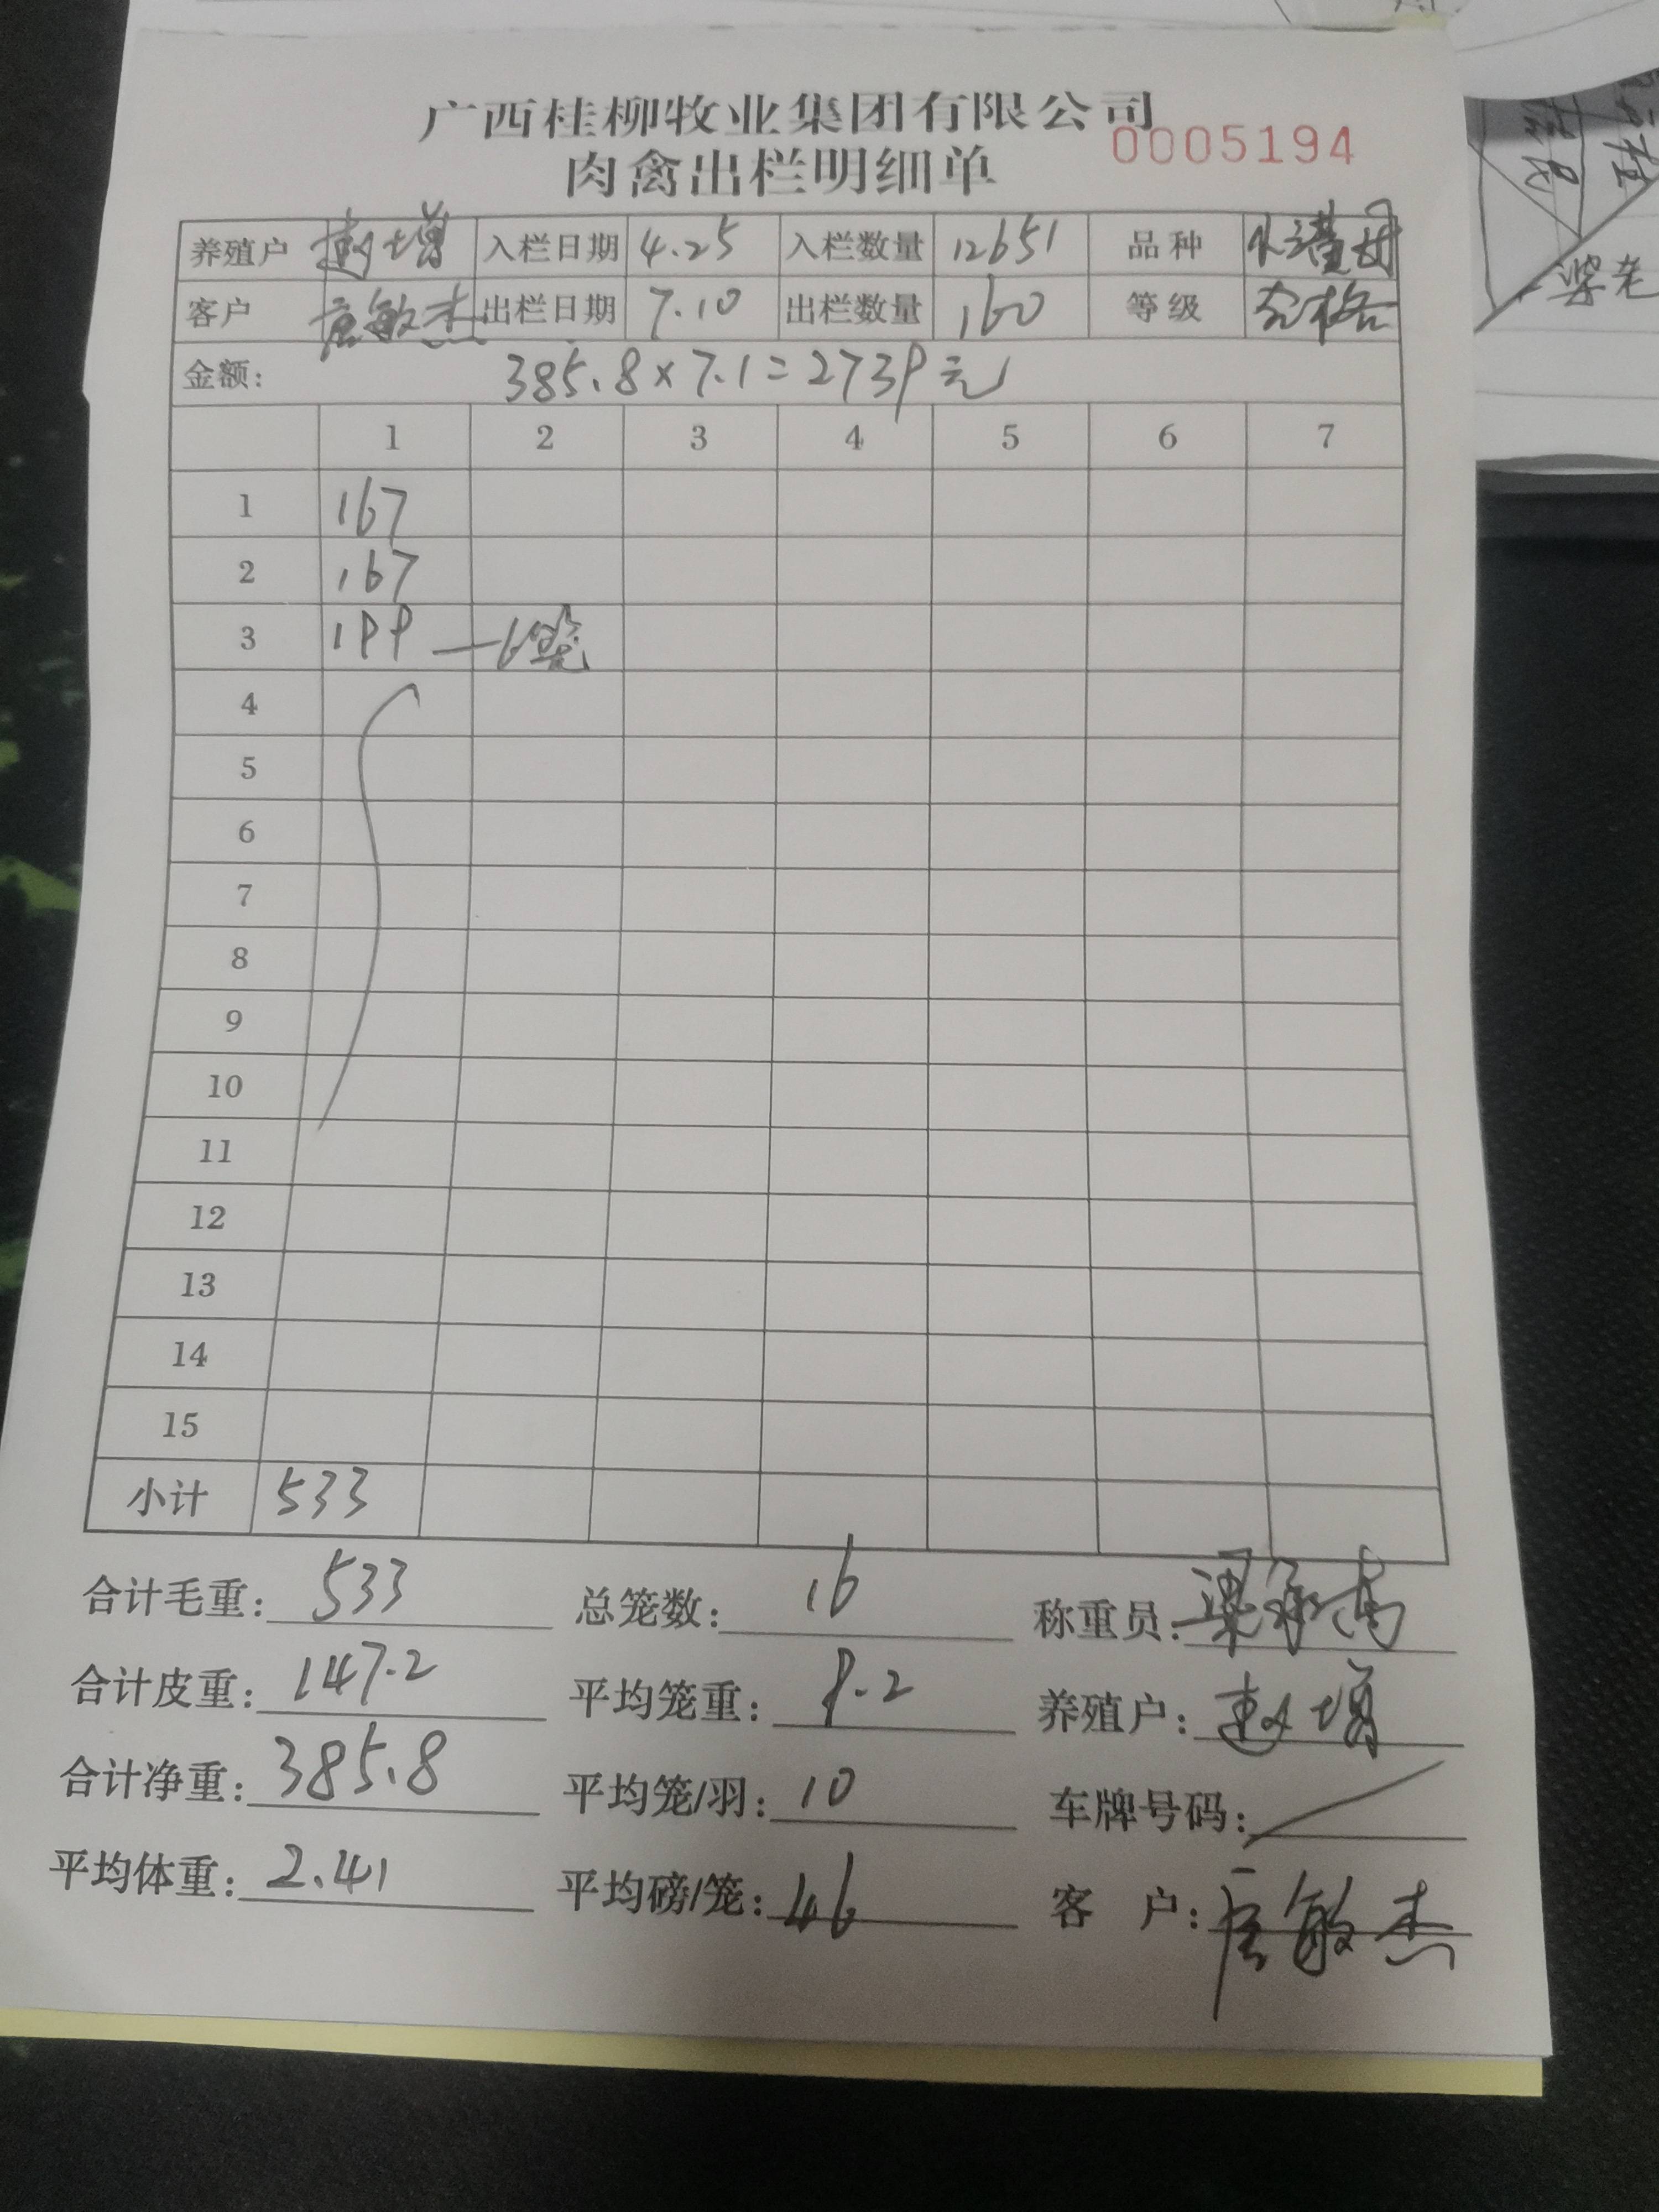 广西桂柳牧业集团有限公司
0005194
肉禽出栏明细单
养殖户 赵增 入栏日期 4.25 入栏数量 12651 品种
客户 唐敏杰 出栏日期 7.10 出栏数量 160 等级 合格
金额: 385.8×7.1=2739元
1 2 3 4 5 6 7
1 167
2 167
3 199 —6笼
4
5
6
7
8
9
10
11
12
13
14
15
小计 533
合计毛重: 533 总笼数: 16 称重员:
合计皮重: 147.2 平均笼重: 9.2 养殖户: 赵增
合计净重: 385.8 平均笼/羽: 10 车牌号码:
平均体重: 2.41 平均磅/笼: 46 客 户: 唐敏杰